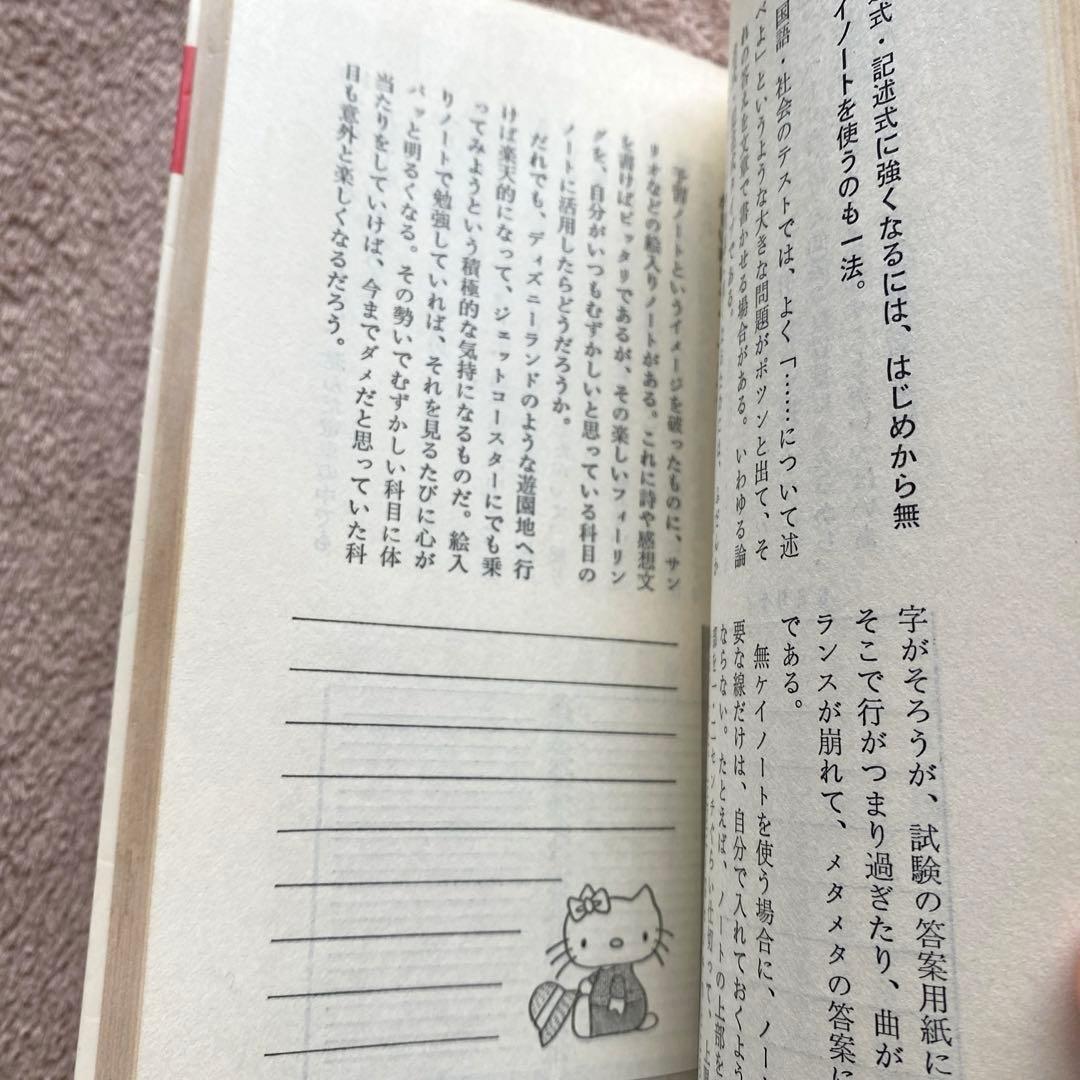 式・記述式に強くなるには、はじめから無
イノートを使うのも一法。
国語・社会のテストでは、よく「……について述
べよ」というような大きな問題がポツンと出て、そ
れの答えを文章で書かせる場合がある。いわゆる論
字がそろうが、試験の答案用紙に
そこで行がつまり過ぎたり、曲が
ランスが崩れて、メタメタの答案に
である。
無ケイノートを使う場合に、ノー
要な線だけは、自分で入れておくよう
ならない。たとえば、ノートの上部を
予習ノートというイメージを破ったものに、サン
リオなどの絵入りノートがある。これに詩や感想文
を書けばピッタリであるが、その楽しいフィーリン
グを、自分がいつもむずかしいと思っている科目の
ノートに活用したらどうだろうか。
だれでも、ディズニーランドのような遊園地へ行
けば楽天的になって、ジェットコースターにでも乗
ってみようという積極的な気持になるものだ。絵入
りノートで勉強していれば、それを見るたびに心が
パッと明るくなる。その勢いでむずかしい科目に体
当たりをしていけば、今までダメだと思っていた科
目も意外と楽しくなるだろう。